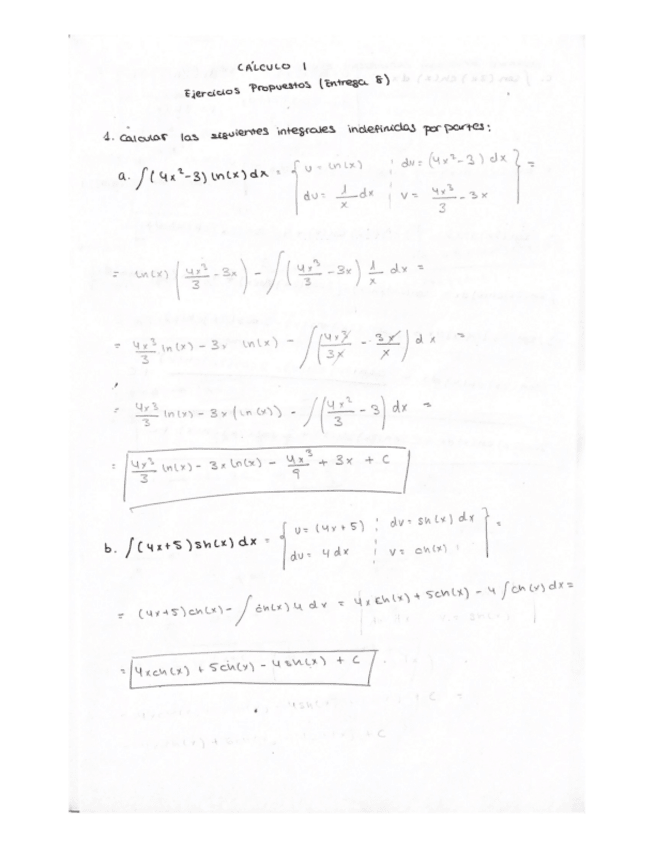 CÁLCULO 1
Ejercicios Propuestos (Entrega 8)
1. Calcular las siguientes integrales indefinidas por partes:
a. ∫(4x²-3) ln(x) dx = { u = ln(x) ¦ dv = (4x²-3) dx
du = 1/x dx ¦ v = 4x³/3 - 3x } =
= ln(x) (4x³/3 - 3x) - ∫(4x³/3 - 3x) 1/x dx =
= 4x³/3 ln(x) - 3x ln(x) - ∫(4x³/3x - 3x/x) dx =
= 4x³/3 ln(x) - 3x (ln(x)) - ∫(4x²/3 - 3) dx =
= 4x³/3 ln(x) - 3x ln(x) - 4x³/9 + 3x + C
b. ∫(4x+5) sh(x) dx = { u = (4x+5) ¦ dv = sh(x) dx
du = 4 dx ¦ v = ch(x) } =
= (4x+5) ch(x) - ∫ ch(x) 4 dx = 4x ch(x) + 5ch(x) - 4 ∫ ch(x) dx =
= 4xch(x) + 5ch(x) - 4sh(x) + C